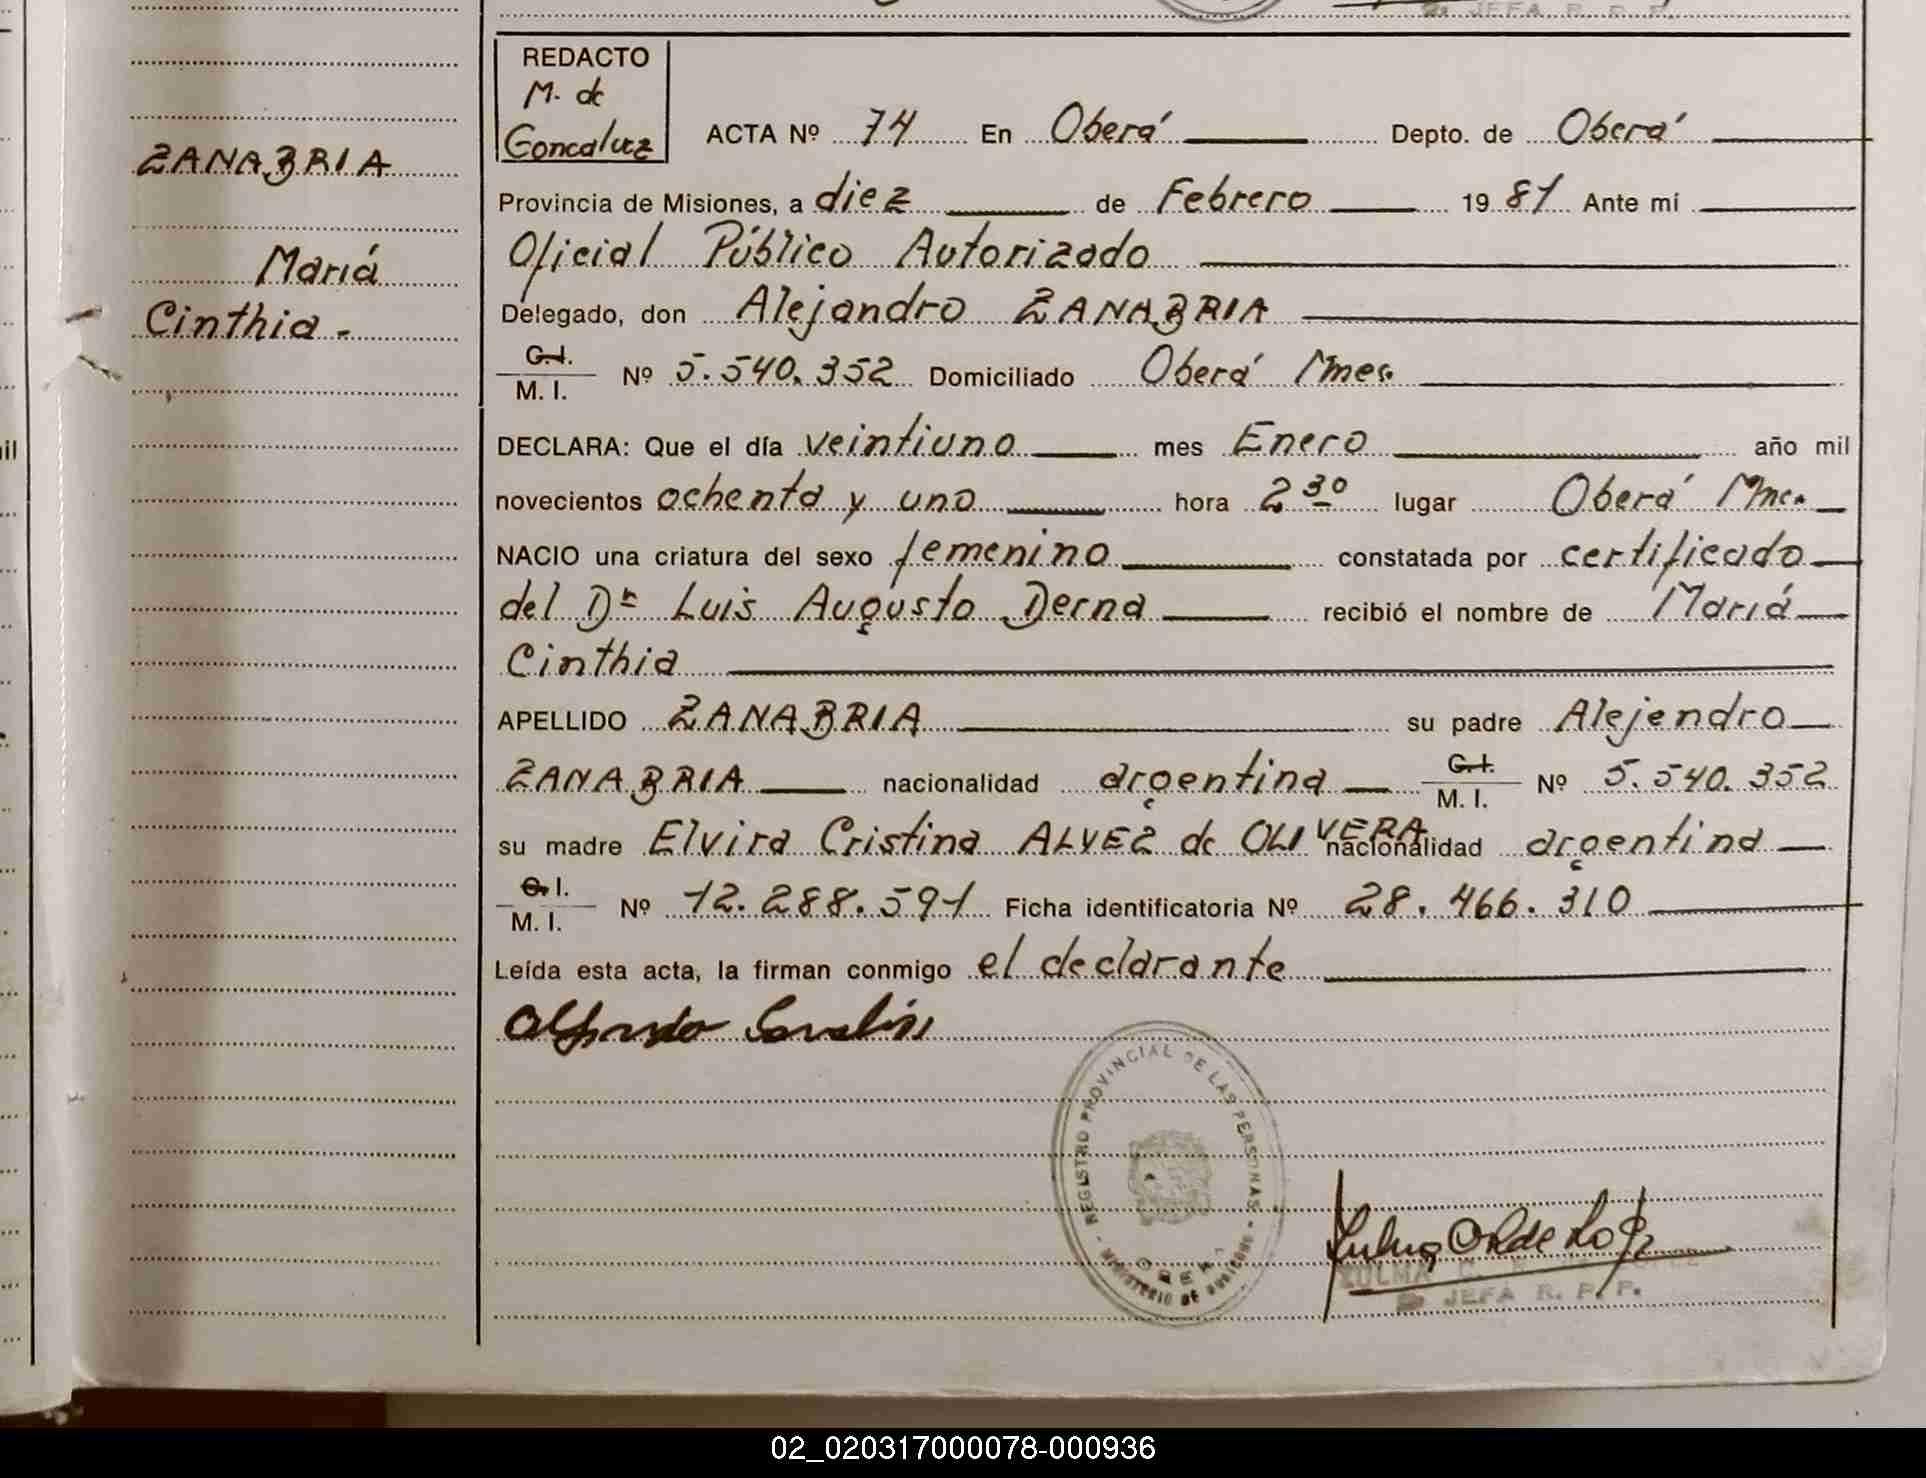 JEFA R. P. P.
REDACTO
M. de
Goncalvez
ACTA Nº 74 En Oberá Depto. de Oberá
ZANABRIA
Provincia de Misiones, a diez de Febrero 1981 Ante mí
Oficial Público Autorizado
Mariá
Delegado, don Alejandro ZANABRIA
Cinthia -
C. I.
M. I. Nº 5.540.352 Domiciliado Oberá Mnes.
DECLARA: Que el día veintiuno mes Enero año mil
novecientos ochenta y uno hora 2 30 lugar Oberá Mnes.
NACIO una criatura del sexo femenino constatada por certificado
del Dr Luis Augusto Derna recibió el nombre de Mariá
Cinthia
APELLIDO ZANABRIA su padre Alejendro
ZANABRIA nacionalidad argentina C. I.
M. I. Nº 5.540.352
su madre Elvira Cristina ALVEZ de OLIVERA nacionalidad argentina
C. I.
M. I. Nº 12.288.591 Ficha identificatoria Nº 28.466.310
Leída esta acta, la firman conmigo el declarante
REGISTRO PROVINCIAL DE LAS PERSONAS
MINISTERIO DE GOBIERNO
OBERA
ZULMA
JEFA R. P. P.
02_020317000078-000936